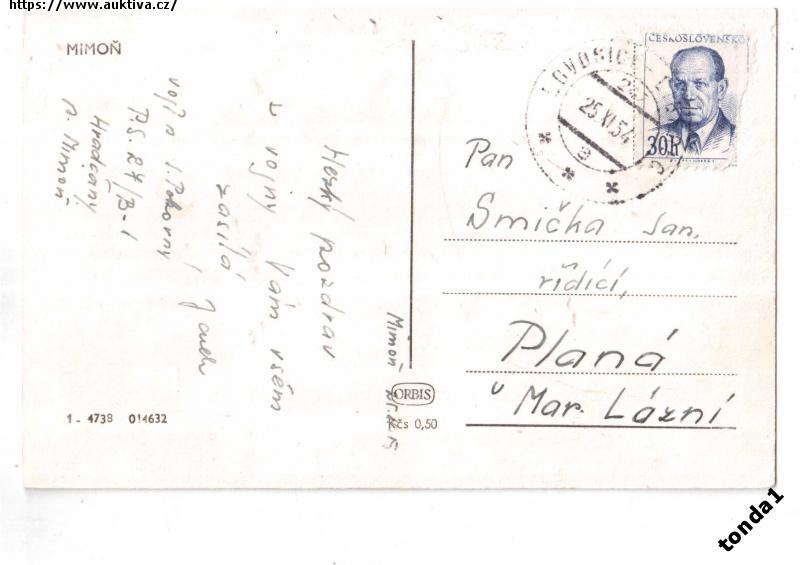 https://www.auktiva.cz/
MIMOŇ
Hezký pozdrav
z vojny Vám všem
zasílá
Mimoň
voj. 
P.S. 27/B-1
Hradčany
p. Mimoň
ČESKOSLOVENSKO
30h
LOVOSICE
25.VI.54
Pan
Smička Jan.
řídící,
Planá
u Mar. Lázní
ORBIS
Kčs 0,50
1 - 4738 014632
tonda1